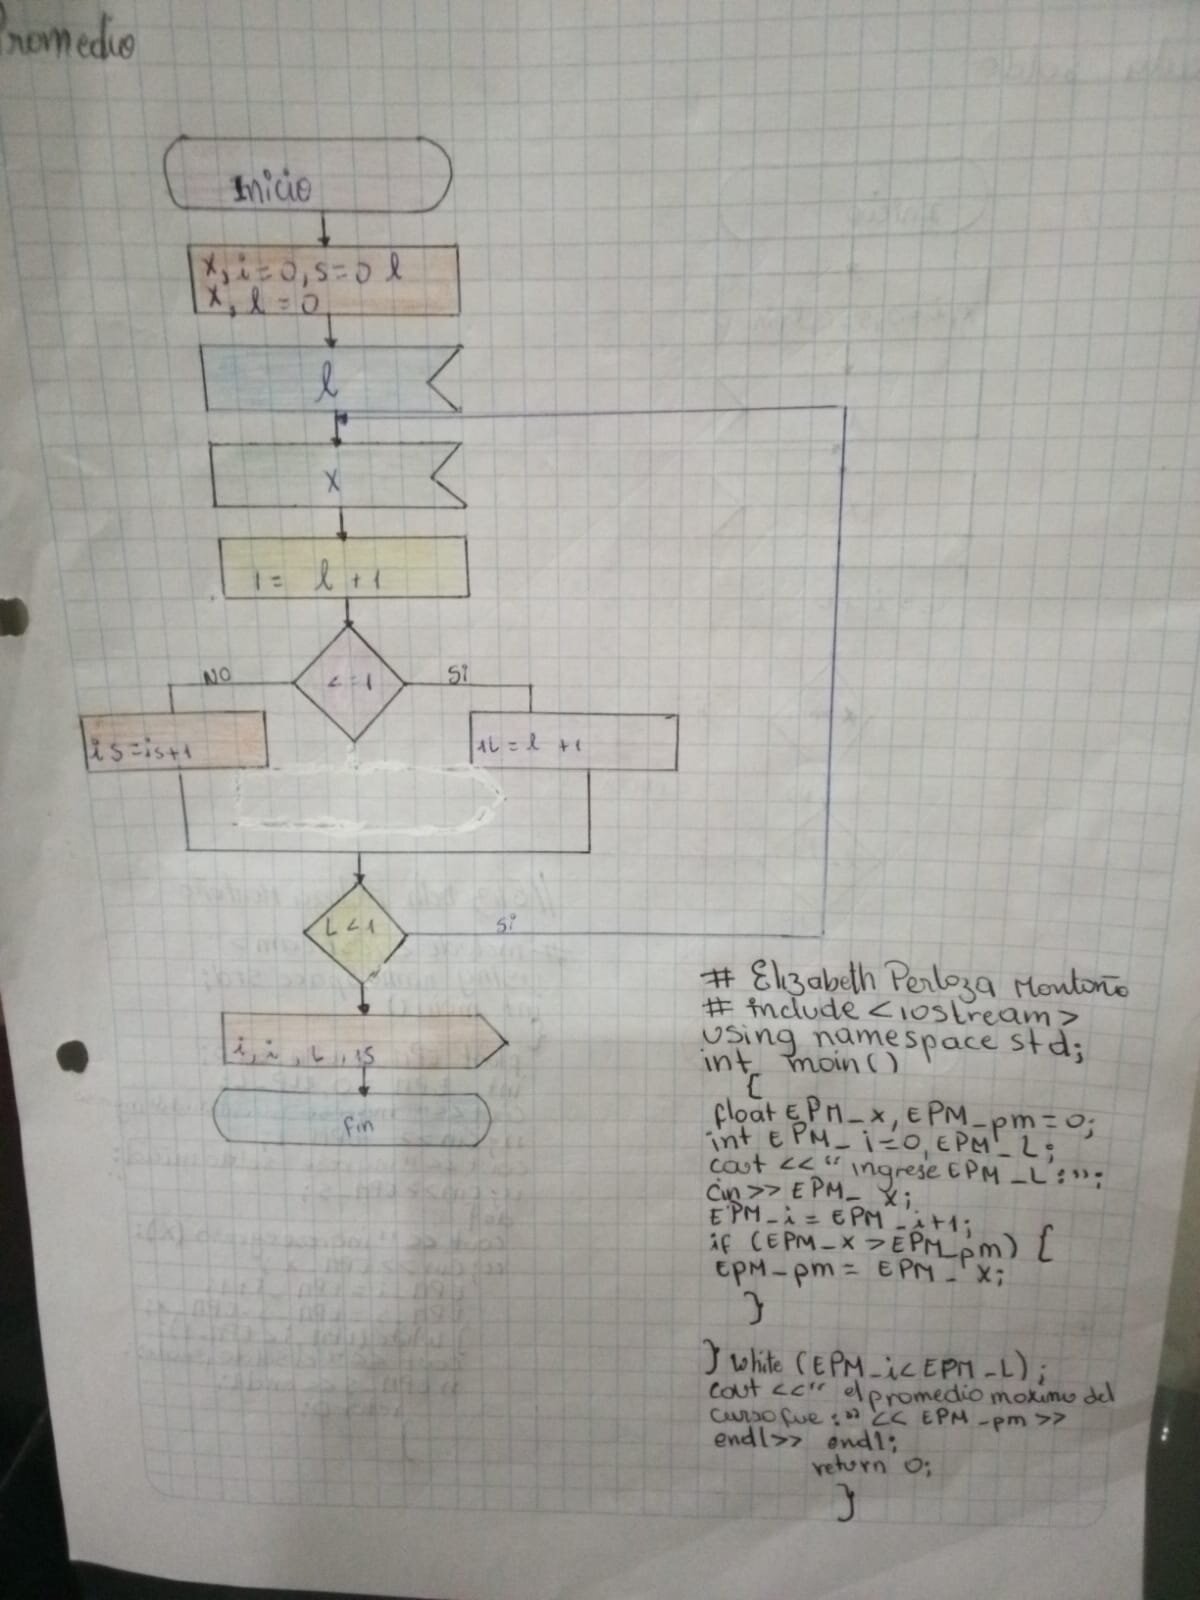 Promedio
Inicio
x, i=0, s=0 l
x, l=0
l
x
1= l+1
NO
<=1
Si
is=is+1
1L=l +1
L<1
si
i, i, L, 1S
fin
# Elizabeth Perloza Montoño
# include <iostream>
using namespace std;
int moin()
{
float EPM_x, EPM_pm=0;
int EPM_i=0, EPM_L;
cout << "ingrese EPM_L:";
cin>> EPM_x;
EPM_i = EPM_i+1;
if (EPM_x >EPM_pm) {
EpM_pm = EPM_x;
}
} white (EPM_i< EPM_L);
cout <<" el promedio moximo del
curso fue:" << EPM_pm >>
endl>> endl;
return 0;
}